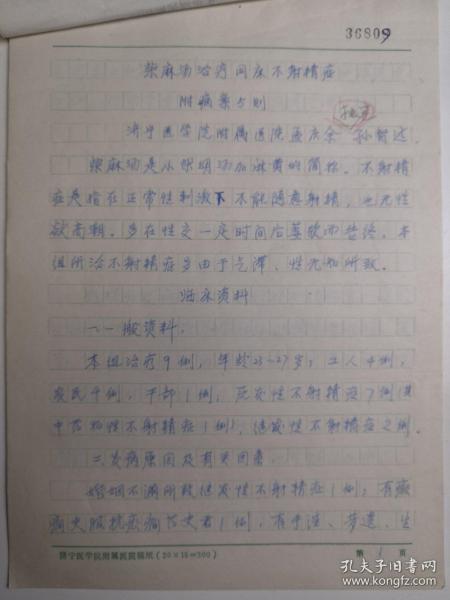 36809
柴麻汤治疗同床不射精症
附病案5则
济宁医学院附属医院 孙智远
柴麻汤是小柴胡汤加麻黄的简称。不射精
症是指在正常性刺激下不能随意射精，也无性
欲高潮。多在性交一定时间后萎软而告终。本
组所治不射精症多由于气滞、性无知所致。
临床资料
一、一般资料：
本组治疗9例，年龄23—27岁；工人4例，
农民4例，干部1例；原发性不射精症7例（其
中药物性不射精症1例），继发性不射精症2例。
二、发病原因及有关因素
婚姻不满所致继发性不射精症1例；有癫
痫史服抗癫痫药史者1例，有手淫、梦遗、
济宁医学院附属医院稿纸（20×15=300）
第 1 页
孔夫子旧书网
book.kongfz.com